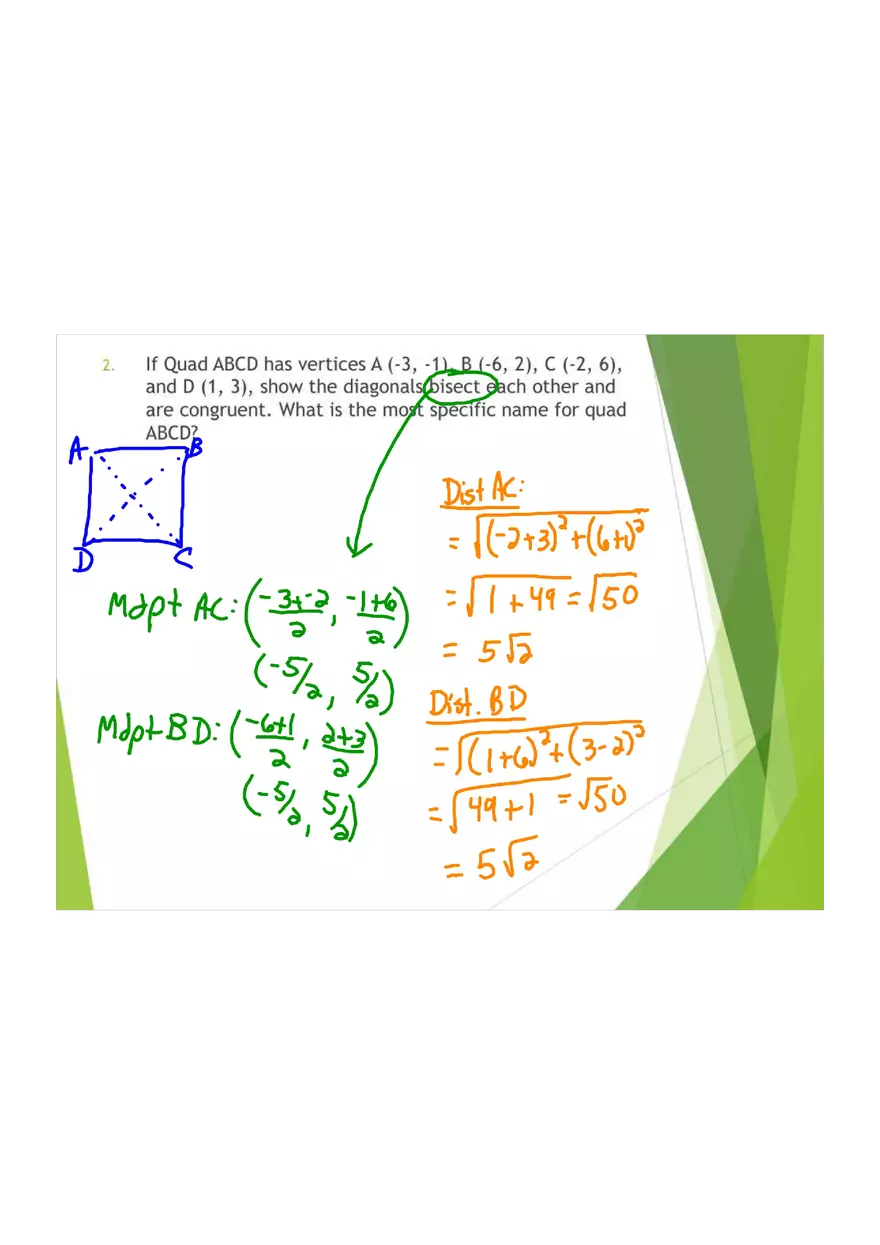 2. If Quad ABCD has vertices A (-3, -1), B (-6, 2), C (-2, 6),
and D (1, 3), show the diagonals bisect each other and
are congruent. What is the most specific name for quad
ABCD?
A B
D C
Mdpt AC: (-3+-2/2, -1+6/2)
(-5/2, 5/2)
Mdpt BD: (-6+1/2, 2+3/2)
(-5/2, 5/2)
Dist AC:
= √(-2+3)²+(6+1)²
= √1+49 = √50
= 5√2
Dist. BD
= √(1+6)²+(3-2)²
= √49+1 = √50
= 5√2